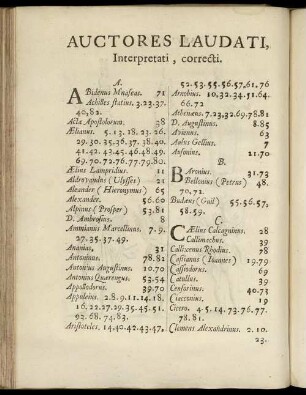 AUCTORES LAUDATI,
Interpretati, correcti.
A.
ABidenus Mnaseas. 71
Achilles statius. 3.23.37.
40,82.
Acta Apostolorum. 38
Ælianus. 5.13.18.23.26.
29.30.35.36.37.38.40.
41.42.43.45.46.48.64.
69.70.72.76.77.79.80.
Ælius Lampridius. 11
Aldrovandus (Ulysses) 21
Alexander (Hieronymus) 65
Alexander. 56.60
Alpinus (Prosper) 53.81
D. Ambrosius. 8
Ammianus Marcellinus. 7.9.
27.35.37.49.
Ananias. 31
Antoninus. 78.82
Antonius Augustinus. 10.70
Antonius Quærengus. 53.54
Apollodorus. 39.70
Appuleius. 2.8.9.11.14.18.
16.22.27.29.35.45.51.
92.68.74.83.
Aristoteles. 14.40.42.43.47.
52.53.55.56.57,61,76
Arnobius. 10.32.34.51.64.
66.72
Athenæus. 7.23,32.69.78.81
D. Augustinus. 8.85
Avienus. 63
Aulus Gellius. 7
Ausonius. 21.70
B.
BAronius. 31.73
Bellonius (Petrus) 48.
70,72.
Budæus (Guil) 55.56.57,
58.59.
C.
CÆlius Calcagninus. 28
Callimachus. 39
Callixenus Rhodius. 78
Cassianus (Ioannes) 19.79
Cassiodorus. 69
Catullus. 39
Censorinus. 40.73
Ciacconius. 19
Cicero. 4.5.14.73.76.77.
78.81.
Clemens Alexandrinus. 2.10.
23.